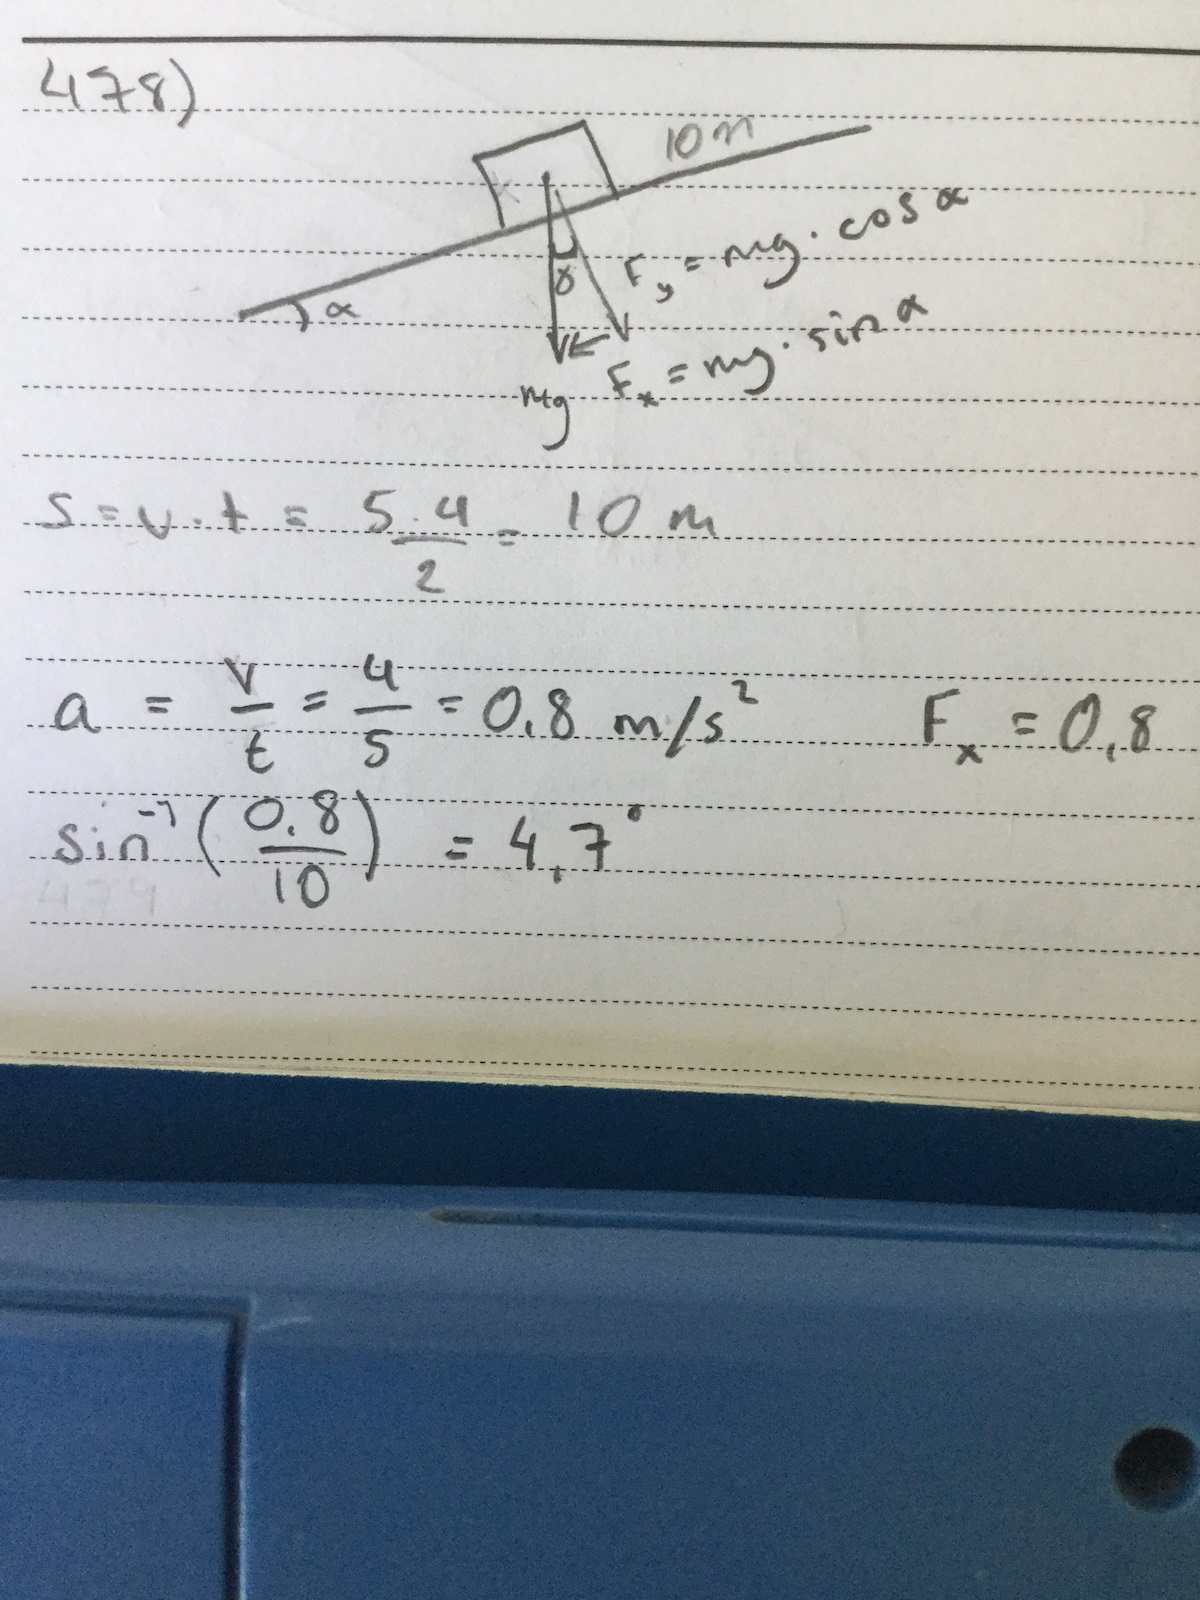 478)
10 m
α
γ
F_y = mg · cos α
F_x = mg · sin α
mg
s = v · t = 5 · 4 / 2 = 10 m
a = v / t = 4 / 5 = 0,8 m/s² F_x = 0,8
sin⁻¹ (0,8 / 10) = 4,7°